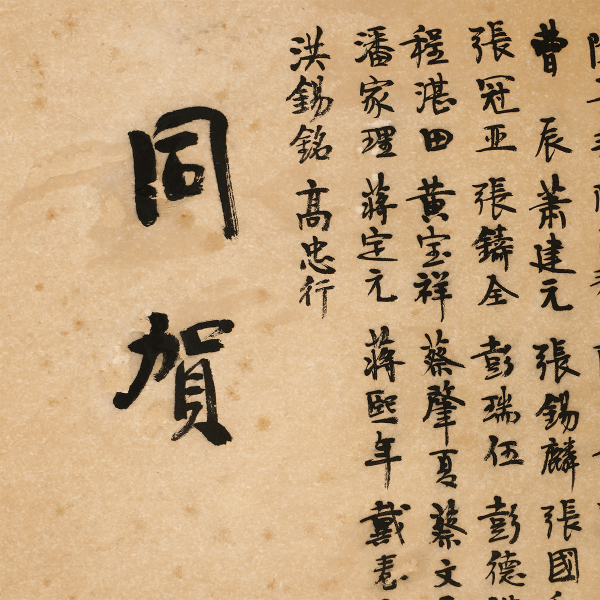 曹辰 蕭建元 張錫麟 張國
張冠亚 張鑄全 彭瑞伍 彭德
程湛田 黃宝祥 蔡肇夏 蔡文
潘家理 蔣定元 蔣熙年 戴
洪錫銘 高忠行
同賀